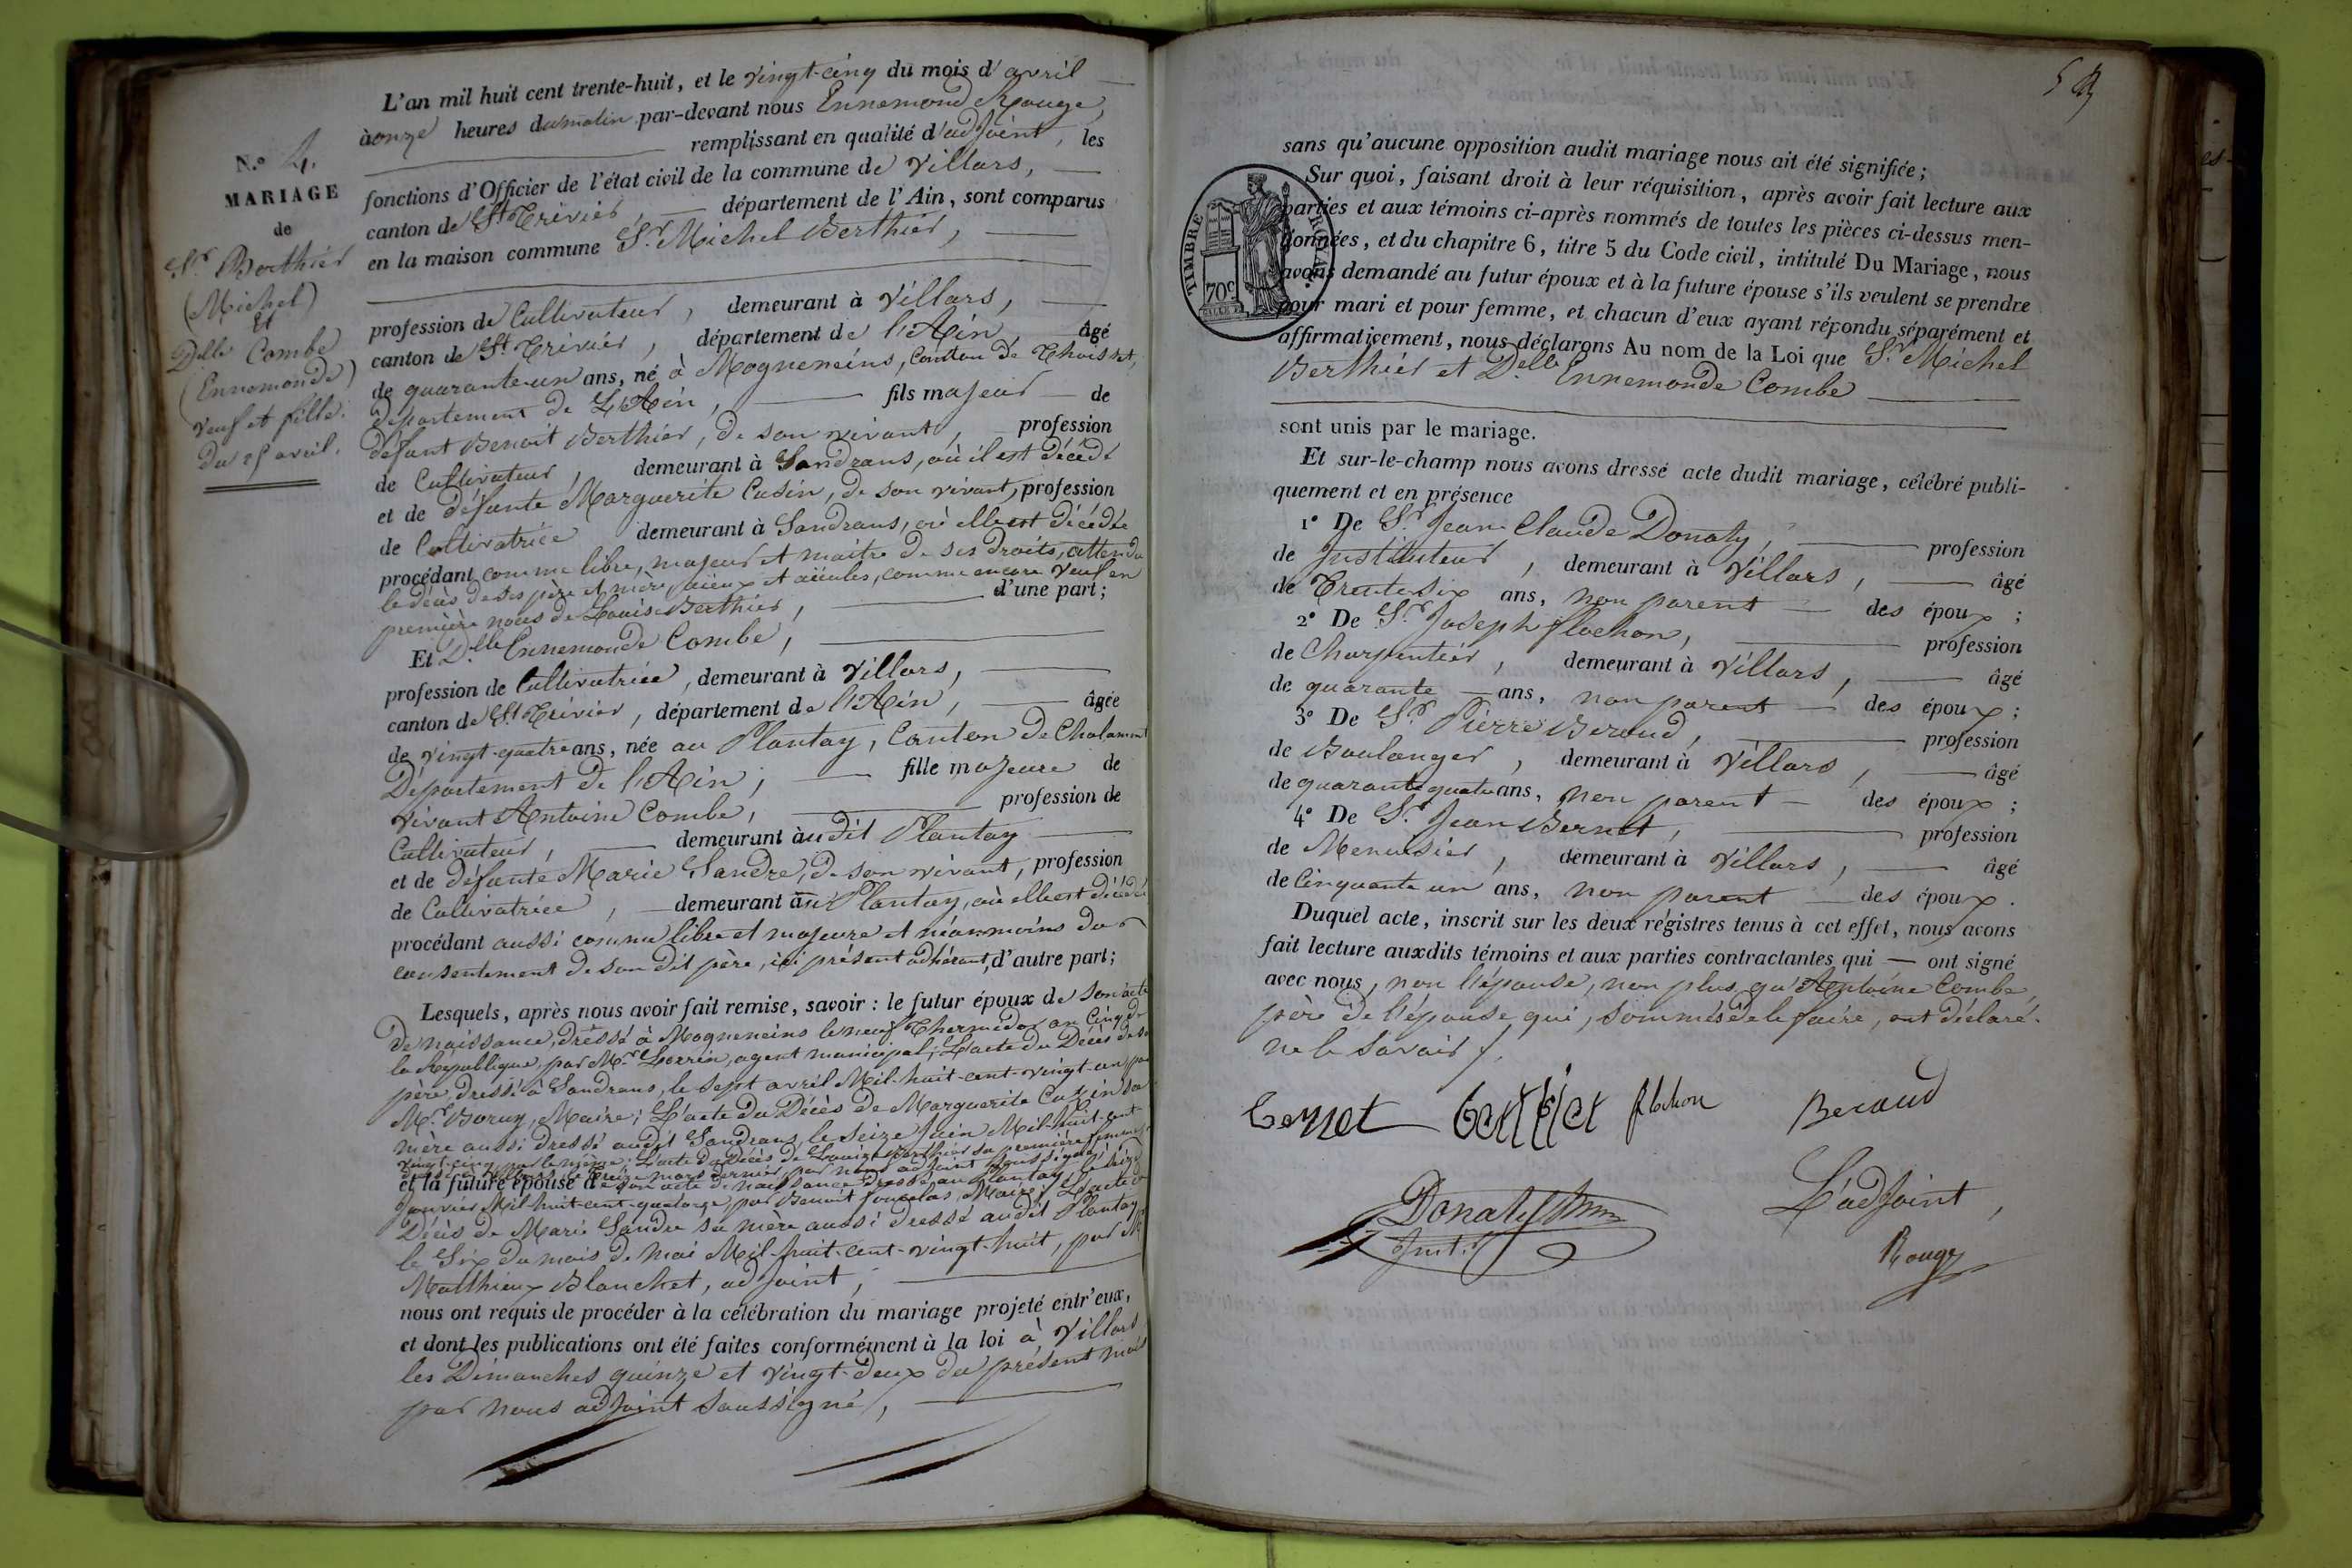 N.o 4.
MARIAGE
de
Sr. Berthier
(Michel)
Et
Delle Combe
(Ennemonde)
veuf et fille.
Du 25 avril.
L'an mil huit cent trente-huit, et le vingt-cinq du mois d'avril
à onze heures du matin par-devant nous Ennemond Rouge,
remplissant en qualité d'adjoint, les
fonctions d'Officier de l'état civil de la commune de Villars,
canton de St Trivier, département de l'Ain, sont comparus
en la maison commune Sr. Michel Berthier,
profession de Cultivateur, demeurant à Villars,
canton de St. Trivier, département de l'Ain, âgé
de quarante-un ans, né à Mogneneins, Canton de Thoissei,
département de L'Ain, fils majeur de
défunt Benoit Berthier, de son vivant, profession
de Cultivateur, demeurant à Sandrans, où il est décédé
et de défunte Marguerite Cusin, de son vivant, profession
de Cultivatrice demeurant à Sandrans, où elle est décédée
procédant comme libre, majeur et maître de ses droits, attendu
le décès de ses père et mère, aïeux et aïeules, comme encore veuf en
première noces de Louise Berthier, d'une part;
Et Delle Ennemonde Combe,
profession de Cultivatrice, demeurant à Villars,
canton de St. Trivier, département de l'Ain, âgée
de vingt-quatre ans, née au Plantay, Canton de Chalamont
Département de l'Ain; fille majeure de
vivant Antoine Combe, profession de
Cultivateur, demeurant audit Plantay
et de défunte Marie Sandre, de son vivant, profession
de Cultivatrice, demeurant au Plantay, où elle est décédée
procédant aussi comme libre et majeure et néanmoins du
consentement de son dit père, ici présent adhérant, d'autre part;
Lesquels, après nous avoir fait remise, savoir: le futur époux de son acte
de naissance, dressé à Mogneneins le neuf Thermidor an Cinq de
la République, par Mr. agent municipal; L'acte du Décès de son
père, dressé à Sandrans, le sept avril Mil-huit-cent-vingt-un par
Mr. Maire; L'acte du Décès de Marguerite Cusin sa
mère aussi dressé audit Sandrans, le seize Juin Mil-huit-cent
vingt-cinq, par le même; L'acte du Décès de Louise Berthier sa première femme,
treize mars dernier, par nous adjoint soussigné;
et la future épouse de son acte de naissance dressé au Plantay, le
Janvier Mil-huit-cent-quatorze, par Benoit Maire; L'acte de
Décès de Marie Sandre sa mère aussi dressé audit Plantay
le Six du mois de Mai Mil-huit-cent-vingt-huit, par Mr
Matthieux Blanchet, adjoint;
nous ont requis de procéder à la célébration du mariage projeté entr'eux,
et dont les publications ont été faites conformément à la loi à Villars
les Dimanches quinze et vingt-deux du présent mois
par nous adjoint soussigné,
sans qu'aucune opposition audit mariage nous ait été signifiée;
Sur quoi, faisant droit à leur réquisition, après avoir fait lecture aux
parties et aux témoins ci-après nommés de toutes les pièces ci-dessus men-
tionnées, et du chapitre 6, titre 5 du Code civil, intitulé Du Mariage, nous
avons demandé au futur époux et à la future épouse s'ils veulent se prendre
pour mari et pour femme, et chacun d'eux ayant répondu séparément et
affirmativement, nous déclarons Au nom de la Loi que Sr. Michel
Berthier et Delle Ennemonde Combe
TIMBRE ROYAL
70c
sont unis par le mariage.
Et sur-le-champ nous avons dressé acte dudit mariage, célébré publi-
quement et en présence
1° De Sr. Jean Claude Donaty, profession
de Instituteur, demeurant à Villars, âgé
de Trente six ans, non parent des époux;
2° De Sr. Joseph flochon, profession
de Charpentier, demeurant à Villars, âgé
de quarante ans, non parent des époux;
3° De Sr. Pierre Beraud, profession
de Boulanger, demeurant à Villars, âgé
de quarante quatre ans, non parent des époux;
4° De Sr. Jean Bernet, profession
de Menuisier, demeurant à Villars, âgé
de Cinquante un ans, non parent des époux.
Duquel acte, inscrit sur les deux régistres tenus à cet effet, nous avons
fait lecture auxdits témoins et aux parties contractantes qui — ont signé
avec nous, non l'épouse, non plus qu'Antoine Combe
père de l'épouse, qui, sommés de le faire, ont déclaré
ne le savoir.
Bernet flochon Beraud
Donaty
Instit.
L'adjoint,
Rouge